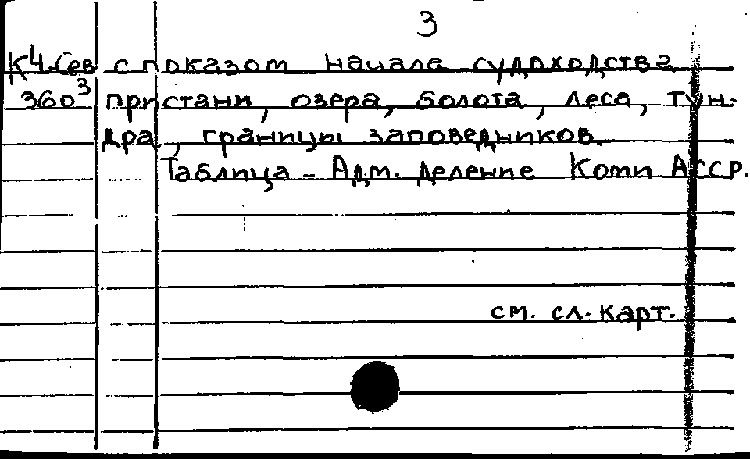 3
К4.Сев с показом начала судоходства
360³ пристани, озера, болота, леса, тун-
дра, границы заповедников.
Таблица - Адм. деление Коми АССР.
см. сл. карт.